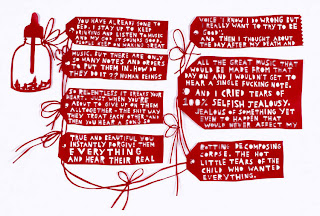 YOU HAVE ALREADY GONE TO
BED I STAY UP TO KEEP
DRINKING AND LISTEN TO MUSIC
MY GOD IT SOUNDS GOOD.
PEOPLE KEEP ON MAKING GREAT
MUSIC. BUT THERE ARE ONLY
SO MANY NOTES AND ORDERS
TO PUT THEM IN. HOW DO
THEY DO IT?? HUMAN BEINGS
SO RELENTLESS IT BREAKS YOUR
WHEN YOU'RE
ABOUT TO GIVE UP ON THEM
ALTOGETHER - THE SHIT WAY
THEY TREAT EACH OTHER AND
THEN YOU HEAR A SONG SO
TRUE AND BEAUTIFUL YOU
INSTANTLY FORGIVE THEM
EVERYTHING
AND HEAR THEIR REAL
VOICE I KNOW I DO WRONG BUT
REALLY WANT TO TRY TO BE
GOOD.
AND THEN I THOUGHT ABOUT
THE DAY AFTER MY DEATH AND
ALL THE GREAT MUSIC THAT
WOULD BE MADE FROM THAT
DAY ON AND I WOULDN'T GET TO
HEAR A SINGLE FUCKING NOTE.
AND I CRIED TEARS OF
100% SELFISH JEALOUSY.
JEALOUS OF SOMETHING YET
EVEN TO HAPPEN THAT
WOULD NEVER AFFECT MY
ROTTING DECOMPOSING
CORPSE. THE HOT
LITTLE TEARS OF
THE CHILD WHO WANTED
EVERYTHING.